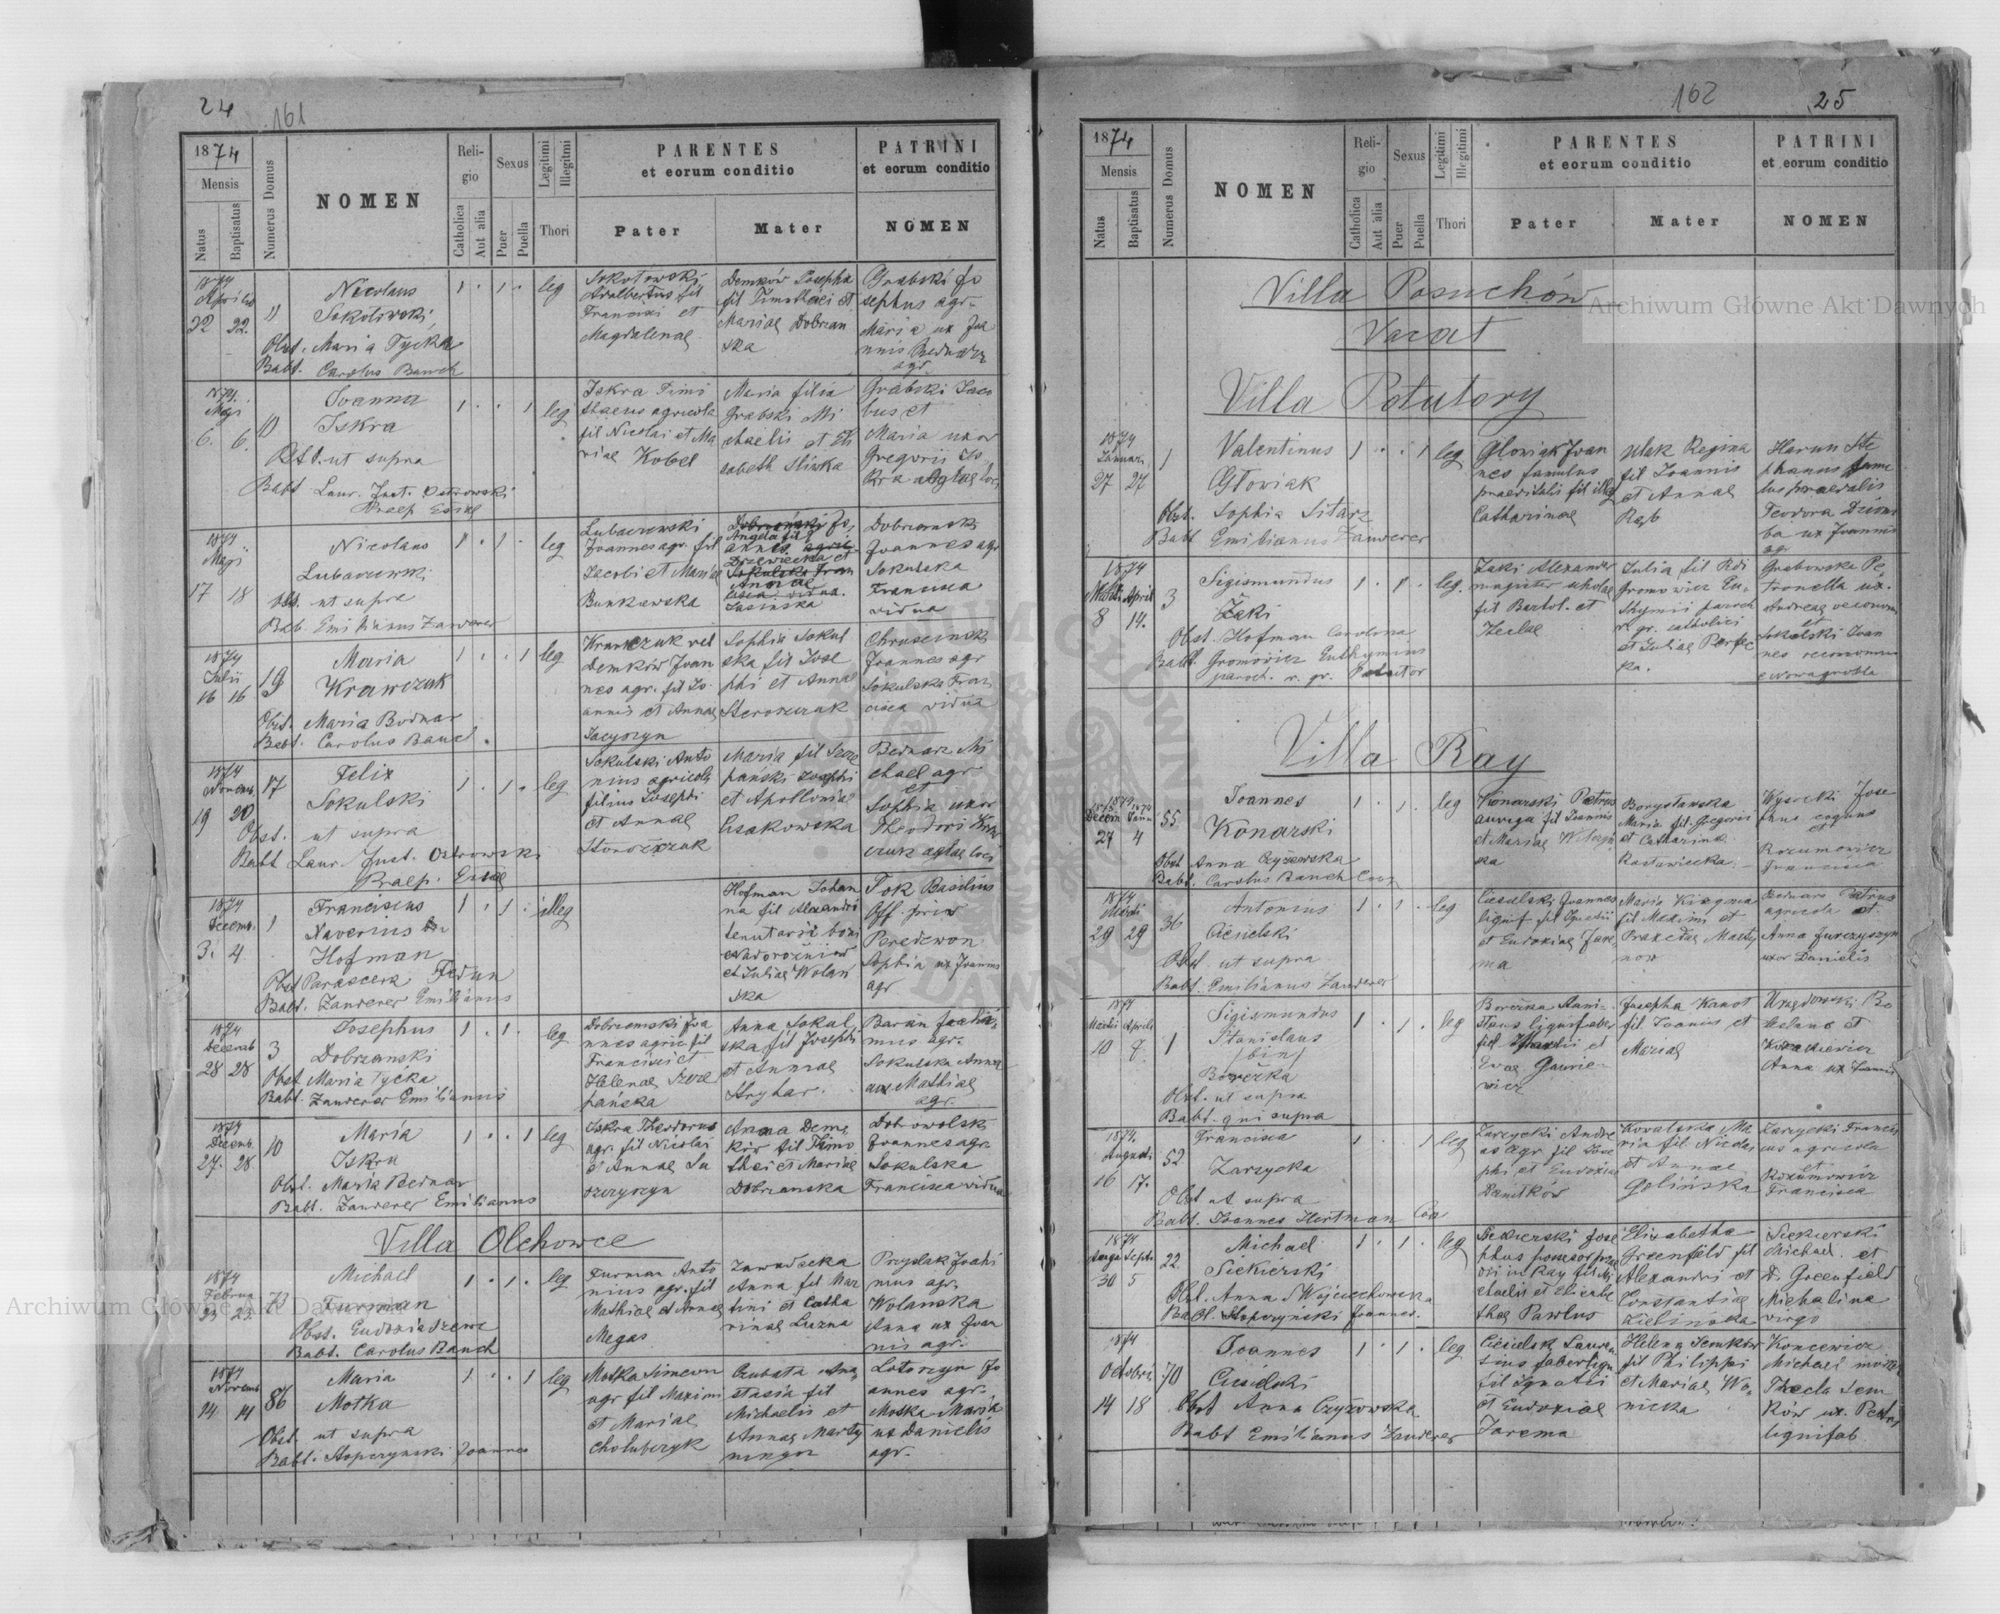 24
161
1874
Mensis
Natus
Baptisatus
Numerus Domus
NOMEN
Religio
Catholica
Aut alia
Sexus
Puer
Puella
Legitimi
Illegitimi
Thori
PARENTES
et eorum conditio
Pater
Mater
PATRINI
et eorum conditio
NOMEN
1874
Aprilis
22 22.
11
Nicolaus
Sokolowski
Obst. Maria Tyćka
Babt. Carolus Bauch
leg
Sokolowski
Adalbertus fil
Francisci et
Magdalenae
Demków Josepha
fil Timothaei et
Mariae Dobrzan
ska
Grabski Jo
sephus agr.
Maria ux Joa
nnis Bednarz
agr
1874.
Maji
6. 6.
10
Joanna
Iskra
Obst. ut supra
Babt Laur. Just. Ostrowski
Praep
leg
Iskra Timo
thaeus agricola
fil Nicolai et Ma
riae Kobel
Maria filia
Grabski Mi
chaelis et Eli
sabeth Sliwka
Grabski Jaco
bus et
Maria uxor
Gregorii Is
kra
1874
Maji
17 18
Nicolaus
Lubaczewski
Obst. ut supra
Bab. Emilianus Zauderer
leg
Lubaczewski
Joannes agr. fil
Jacobi et Mariae
Bunkowska
Angela fil
Drzewiecka et
Annae
Jasinska
Dobrzanski
Joannes agr
Sokulska
Francisca
vidua
1874
Julii
16 16
19
Maria
Krawczuk
Obst. Maria Bodnar
Babt. Carolus Bauch
leg
Krawczuk vel
Demków Joan
nes agr. fil Jo
annis et Annae
Jacyszyn
Sophia Sokul
ska fil Jose
phi et Annae
Storozczuk
Chruscinski
Joannes agr
Sokulska Fran
cisca vidua
1874
Novemb.
19 20
17
Felix
Sokulski
Obst. ut supra
Babt Laur. Just. Ostrowski
Praep.
leg
Sokulski Anto
nius agricola
filius Josephi
et Annae
Storozczuk
Maria fil Szcze
pański Josephi
et Apolloniae
Lisakowska
Bednarz Mi
chael agr
et
Sophia uxor
Theodori Kraw
czuk
1874
Decemb.
3. 4
1
Franciscus
Xaverius
Hofman
Obst Parascera Fedun
Babt. Zauderer Emilianus
illeg
Hofman Johan
na fil Alexandri
tenutarii boni
Nadorożniow
et Juliae Wolań
ska
Tok Basilius
Off. priv
Peredewon
Sophia ux Joannis
agr
1874
Decemb
28 28
3
Josephus
Dobrzanski
Obst Maria Tyćka
Babt. Zauderer Emilianus
leg
Dobrzanski Joa
nnes agric fil
Francisci et
Helenae Szcze
pańska
Anna Sokul
ska fil Josephi
et Annae
Hryhar.
Baran Joachi
mus agr.
Sokulska Anna
ux Mathiae
agr.
1874
Decemb.
27. 28
10
Maria
Iskra
Obst. Maria Bednar
Babt. Zauderer Emilianus
leg
Iskra Theodorus
agr. fil Nicolai
et Annae
Anna Dem
ków fil Timo
thei et Mariae
Dobrzanska
Dobrowolski
Joannes agr.
Sokulska
Francisca vidua
Villa Olchowce
1874
Februa
23 23.
73
Michael
Furman
Obst. Eudoxia Szewc
Babt. Carolus Bauch
leg
Furman Anto
nius agr. fil
Mathiae et Annae
Megas
Zawadzka
Anna fil Mar
tini et Catha
rinae Luzna
Przyslak Joachi
mus agr.
Wolanska
Anna ux Joan
nis agr.
1874
Novemb
14 14
86
Maria
Motka
Obst. ut supra
Babt. Kopczynski Joannes
leg
Motka Simeon
agr fil Maximi
et Mariae
Cholubczyk
Czubata Ana
stasia fil
Michaelis et
Annae Marty
Lotoszyn Jo
annes agr.
Motka Maria
ux Danielis
agr.
162
25
1874
Mensis
Natus
Baptisatus
Numerus Domus
NOMEN
Religio
Catholica
Aut alia
Sexus
Puer
Puella
Legitimi
Illegitimi
Thori
PARENTES
et eorum conditio
Pater
Mater
PATRINI
et eorum conditio
NOMEN
Villa Posuchów
Vacat
Villa Potutory
1874
Januar.
27 27
1
Valentinus
Głowiak
Obst. Sophia Sitarz
Babt Emilianus Zauderer
leg
Glowiak Joan
nes famulus
praedialis fil illeg
Catharinae
Ulak Regina
fil Joannis
et Annae
Rąb
Harun Ste
phanus famu
lus praedialis
Teodora Dziom
ba ux Joannis
agr
1874
Martii April
8 14.
3
Sigismundus
Żaki
Obst. Hofman Carolina
Babt. Gromowicz Euthymius
paroch. r. gr.
leg.
Zaki Alexander
magister scholae
fil Bartol. et
Theclae
Julia fil Rdi
Gromowicz Eu
thymii paroch
r. gr. catholici
et Juliae Perfec
ka.
Grabowska Pe
tronella ux.
Andreae oeconom
et
Sokalski Joan
nes oeconomus
Villa Ray
1873 1874
Decem Janu
27 4
55
Joannes
Konarski
Obst Anna Czyżewska
Babt. Carolus Bauch Coop
leg
Konarski Petrus
auriga fil Joannis
et Mariae
Borysławska
Maria fil. Gregorii
et Catharinae
Rastawiecka.
Wysocki Jose
phus coquus
et
Rozumowicz
Francisca
1874
Martii
29 29
36
Antonius
Ciesielski
Obst. ut supra
Babt. Emilianus Zauderer
leg
Ciesielski Joannes
lignif fil Ignatii
et Eudoxiae Jare
ma
Maria
fil Maximi et
Praxedae Marty
now
Bednarz Petrus
agricola et
Anna Jurczyszyn
uxor Danielis
1874
Martii Aprili
10 7
1
Sigismundus
Stanislaus
/bin/
Boreczka
Obst. ut supra
Babt. qui supra
leg
fil
Evae Gawrie
wicz
Josepha Kanot
fil Joannis et
Mariae
Bo
leslaus et
Anna ux Joannis
1874.
Augusti
16 17.
52
Francisca
Zarzycka
Obst ut supra
Babt. Joannes Hertman Coo
leg
Zarzycki Andre
as agr. fil Jose
phi et Eudoxiae
Daniłków
Kovalska Ma
ria fil. Nicolai
et Annae
Golińska
Zarzycki Francis
cus agricola
et
Rozumowicz
Francisca
1874
Augu Septe
30 5
22
Michael
Siekierski
Obst. Anna Wojciechowska
Babt. Kopczyński Joannes.
leg
Siekierski Jose
phus
in Ray fil Mi
chaelis et Elisabe
thae Pawlus
Elizabetha
Greenfield fil
Alexandri et
Constantiae
Zielinska
Siekierski
Michael et
D. Greenfield
Michalina
virgo
1874
Octobris
14 18
70
Joannes
Ciesielski
Obst Anna Czyżowska
Babt Emilianus Zauderer
leg
Ciesielski Lauren
tius faber lign
fil Ignatii
et Eudoxiae
Jarema
Helena Semków
fil Philippi
et Mariae Wo
nicka
Koncewicz
Michael
Thecla Sem
ków ux. Petri
lignifab
Archiwum Główne Akt Dawnych
Archiwum Główne Akt Dawnych